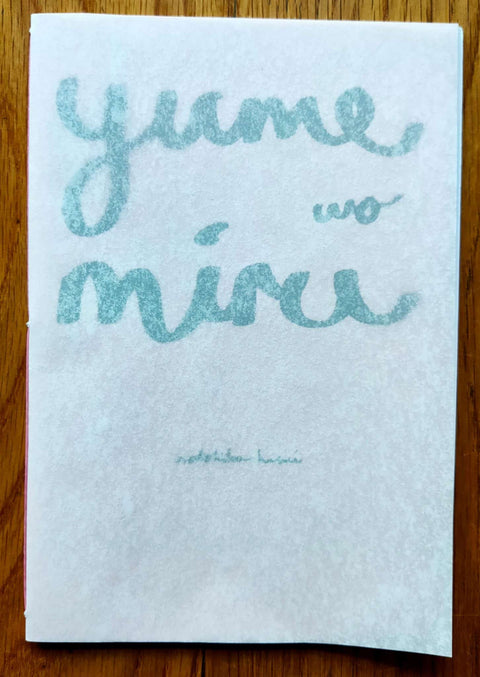 yume
wo
miru